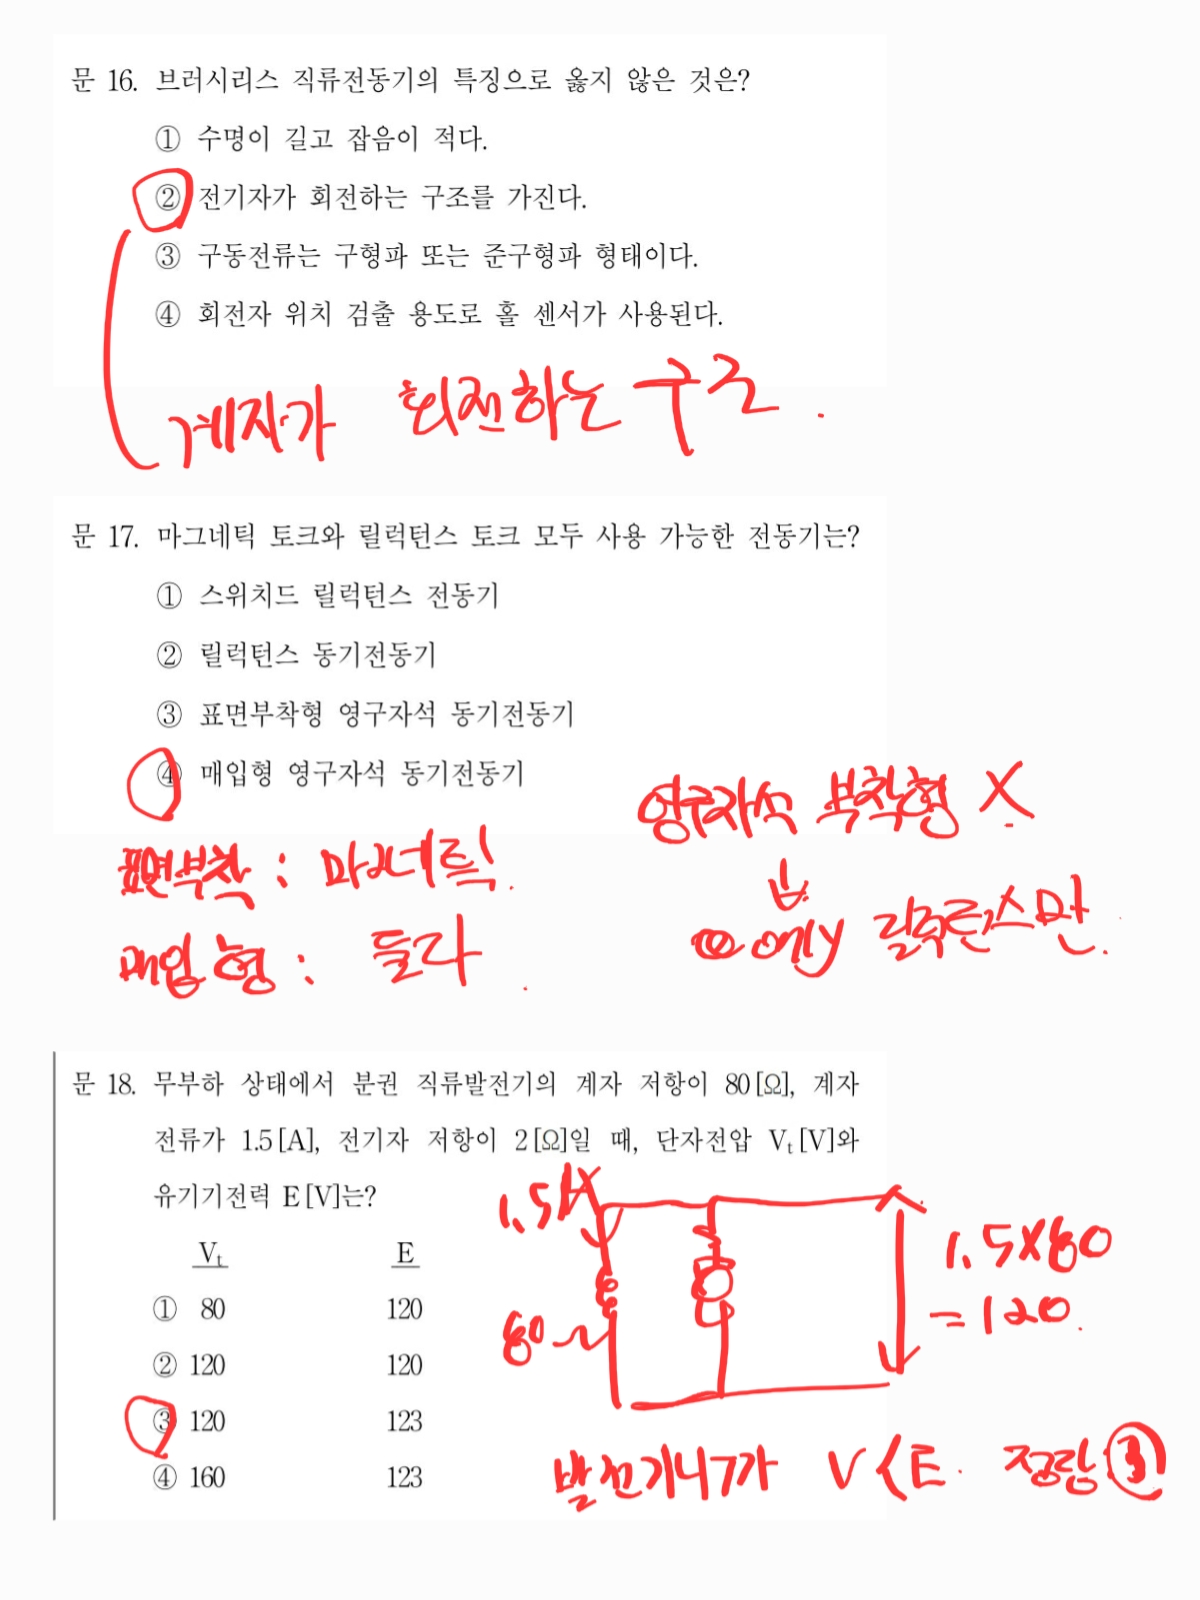 문 16. 브러시리스 직류전동기의 특징으로 옳지 않은 것은?
① 수명이 길고 잡음이 적다.
② 전기자가 회전하는 구조를 가진다.
③ 구동전류는 구형파 또는 준구형파 형태이다.
④ 회전자 위치 검출 용도로 홀 센서가 사용된다.
계자가 회전하는 구조.
문 17. 마그네틱 토크와 릴럭턴스 토크 모두 사용 가능한 전동기는?
① 스위치드 릴럭턴스 전동기
② 릴럭턴스 동기전동기
③ 표면부착형 영구자석 동기전동기
④ 매입형 영구자석 동기전동기
영구자석 부착형 X
표면부착 : 마그네틱.
only 릴럭턴스만.
매입형 : 둘다.
문 18. 무부하 상태에서 분권 직류발전기의 계자 저항이 80[Ω], 계자
전류가 1.5[A], 전기자 저항이 2[Ω]일 때, 단자전압 Vt[V]와
유기기전력 E[V]는?
Vt E
① 80 120
② 120 120
③ 120 123
④ 160 123
1.5A
80
1.5X80
=120.
발전기니까 V<E. 정답 ③